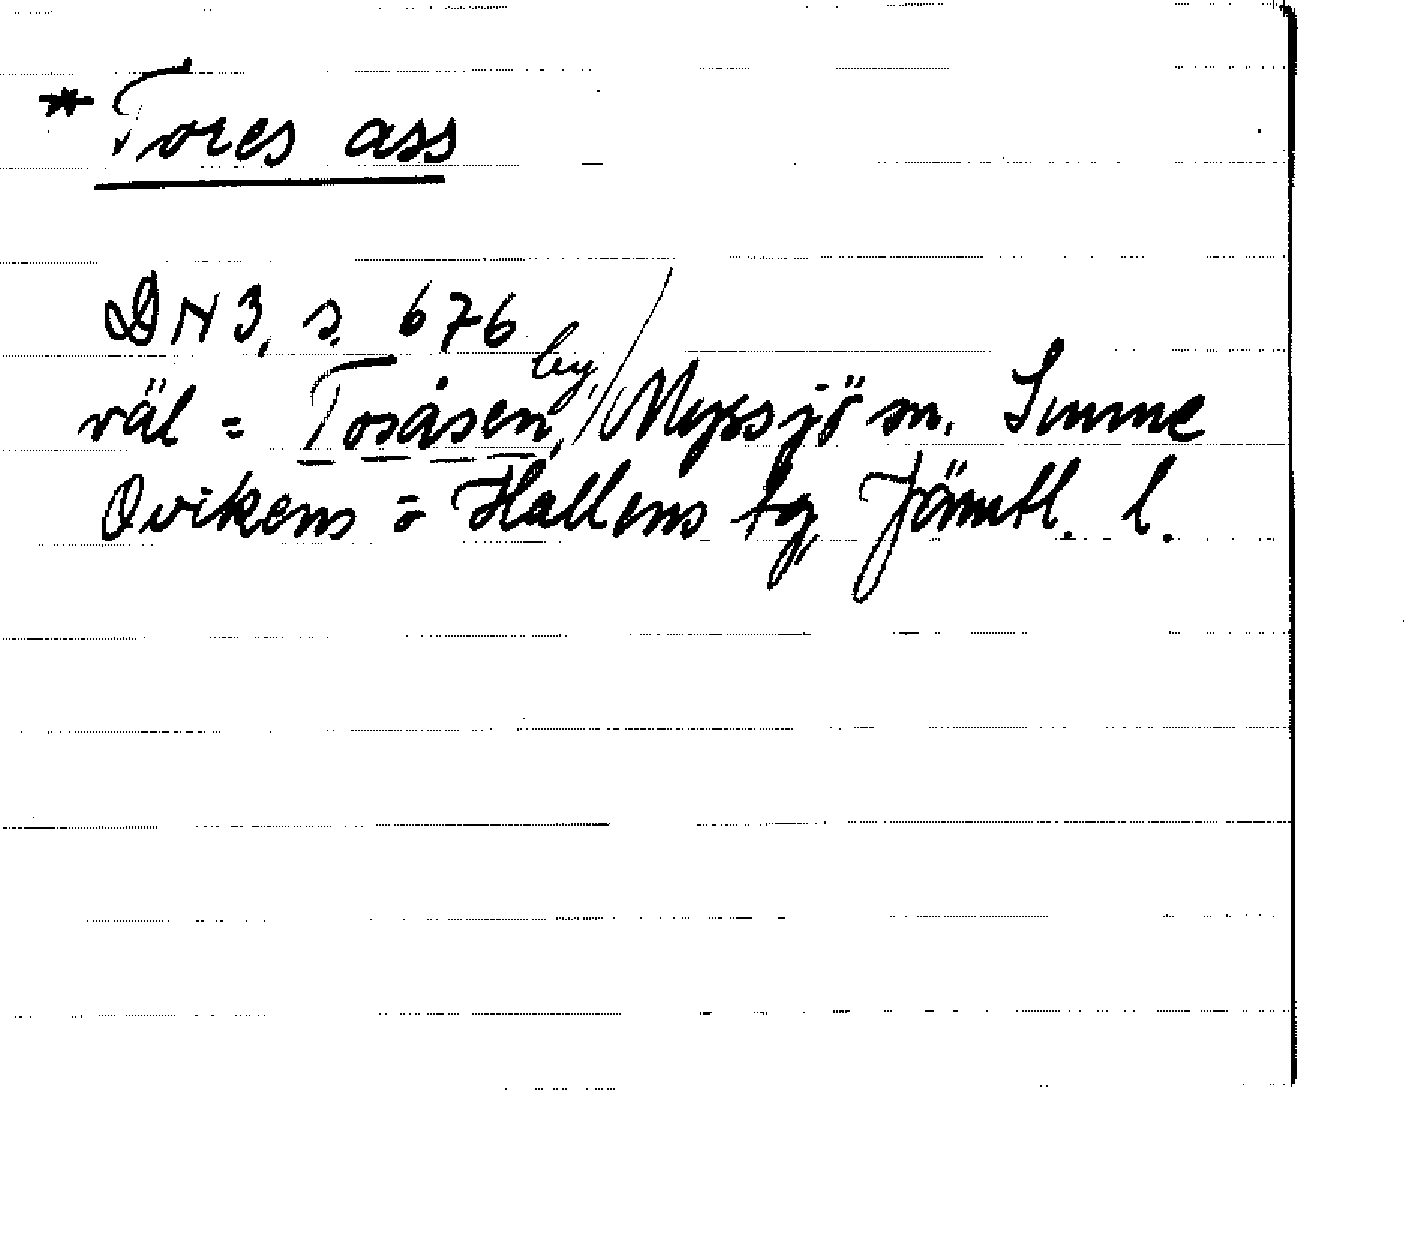 *Tores ass
DN 3, s. 676
väl = Tosåsen, by, / Myssjö sn. Sunne
Ovikens o Hallens tg, Jämtl. l.